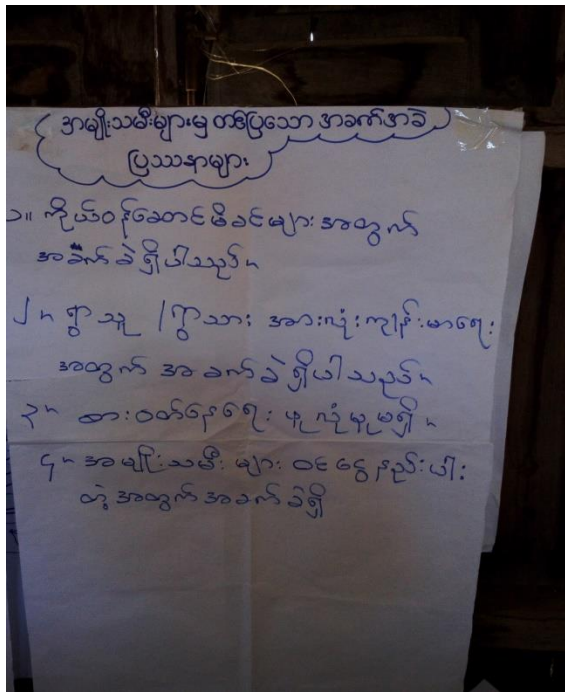 အမျိုးသမီးများမှ တင်ပြသော အခက်အခဲ
ပြဿနာများ
၁။ ကိုယ်ဝန်ဆောင်မိခင်များ အတွက်
အခက်ခဲရှိပါသည်။
၂။ ရွာသူ/ရွာသား အားလုံးကျန်းမာရေး
အတွက် အခက်ခဲရှိပါသည်။
၃။ စားဝတ်နေရေး ဖူလုံမှုမရှိ။
၄။ အမျိုးသမီးများ ဝင်ငွေနည်းပါး
တဲ့အတွက်အခက်ခဲရှိ